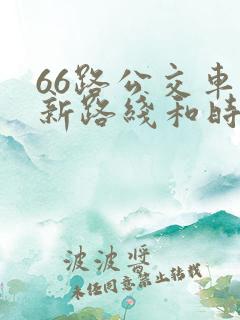 66路公交车
新路线和时
波波酱
未经同意禁止转载